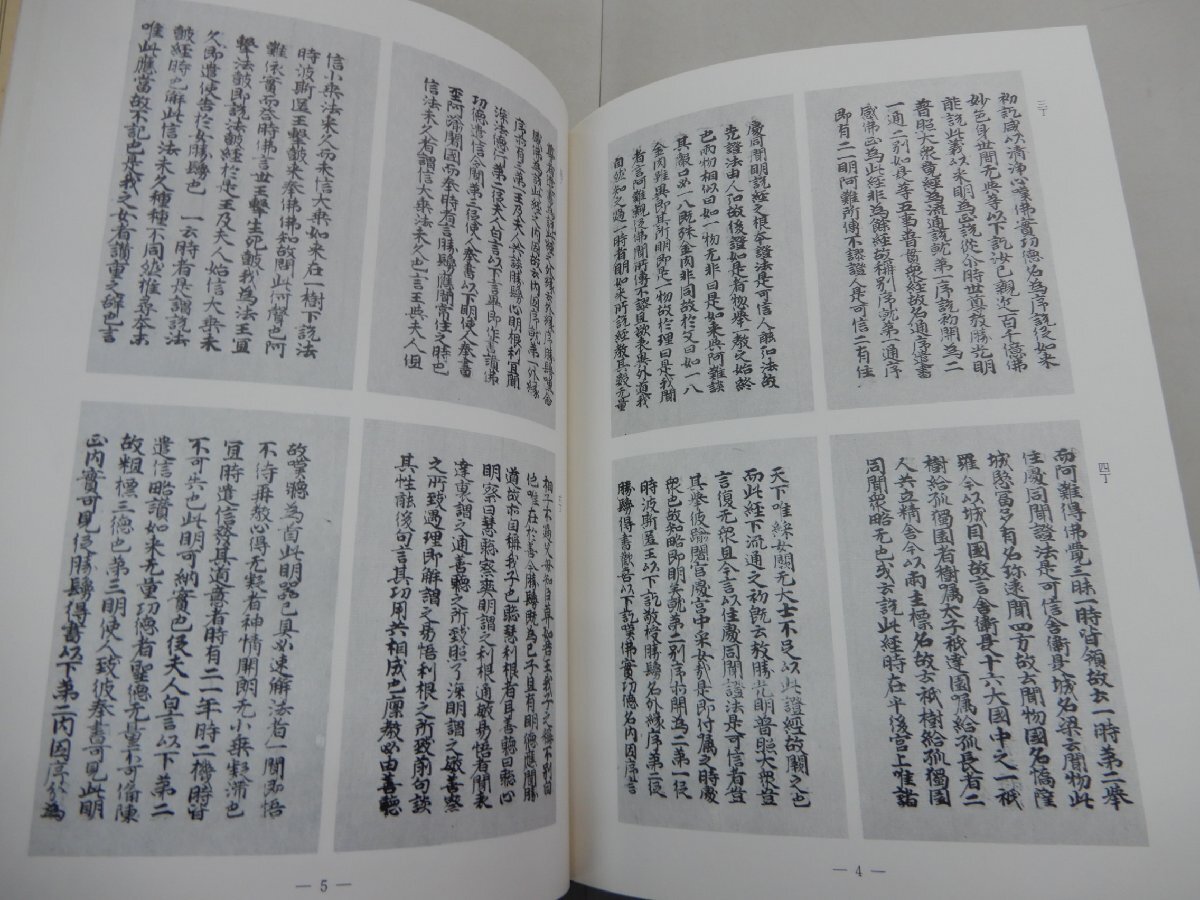 三丁
初訖感以清浄心嘆佛實功徳名為序説從如来
妙色身世間无与等以下訖汝已親近百千億佛
能説此義以来明為正説從尒時世尊放勝光明
普照大衆竟經為流通説就第一序説初開為二
一通二別如是等五事普貫衆經故名通序遣書
感佛正為此經非為餘經故稱別序就第一通序
即有二一明阿難所傳不謬證人是可信二有住
處同聞明説經之根本證法是可信人能弘法故
先證法由人弘故後證如是者惣舉一教之始終
也兩物相似曰如一物无非曰是如来與阿難談
其嗀口必一八既殊金肉非同故於文曰如一八
金肉雖異即其所明即是一物故於理曰是我聞
者言阿難親従佛聞所傳不謬且欲表異外道我
自然知之過一時者明如来所説經教其數无量
四丁
而阿難得佛覺三昧一時皆領故云一時第二舉
住處同聞證法是可信舍衛是城名梁云聞物此
城慇富多有名称遠聞四方故云聞物國名憍薩
羅今以城目國故言舍衛是十六大國中之一祇
樹給孤獨園者樹属太子祇逹園属給孤長者二
人共立精舍今以兩主標名故云祇樹給孤獨園
同聞衆略无也或云説此經時在於後宮上唯諸
天下唯婇女闕无大士不足以此證經故闕之也
而此經下流通之初既云放勝光明普照大衆豈
言復无衆且今言以住處同聞證法是可信者豈
其舉彼踰闍宮處宮中采女哉是即付属之時處
衆也故知略即明矣就第二別序亦開為二第一從
時波斯匿王以下訖敬授勝鬘名外縁序第二從
勝鬘得書歡喜以下訖嘆佛實功徳名内因序言
— 4 —
序亦有二第一王及夫人談勝鬘心明根利宜聞
深法第二従夫人白言以下即作書讃佛
功徳遣信令聞第三従使人奉書以下明使人奉書
至阿踰闍國而奉時有言勝鬘應聞常住之時也
信法未久者謂信大乗法未久也一言王與夫人但
信小乗法来久而未信大乗如来在一樹下説法
時波斯匿王撃皷来奉佛佛知故問此何聲也阿
難依實而答時佛言世王撃生死皷我為法王宜
撃法皷即説法皷經於是王及夫人始信大乗未
久即遣使告於女勝鬘也 一云時者是謂説法
皷經時也解此信法未久種種不同然推尋本末
唯此應當故不記也是我之女者讃重之辞也言
他唯在於善今勝鬘既為己子且有明徳應聞勝
道故亦自稱我子也聡慧利根者耳善聴曰聡心
明察曰慧聡察爽明謂之利根通敏易悟者聞表
達裏謂之通善聴之所致照了深明謂之敏善察
之所致遇理即解謂之易悟利根之所致前句談
其性能後句言其功用共相成也稟教必由善聴
故嘆聡為首此明器已具必速解法者一聞即悟
不待再教心得无疑者神情開朗无小乗疑滞也
宜時遣信發其道意者時有二一年時二機時皆
不可失也此明可納實也従夫人白言以下第二
遣信略讃如来无量功徳者聖徳无量不可備陳
故粗標三徳也第三明使人致彼奉書可見此明
正内實可見従勝鬘得書以下第二内因序分為
— 5 —